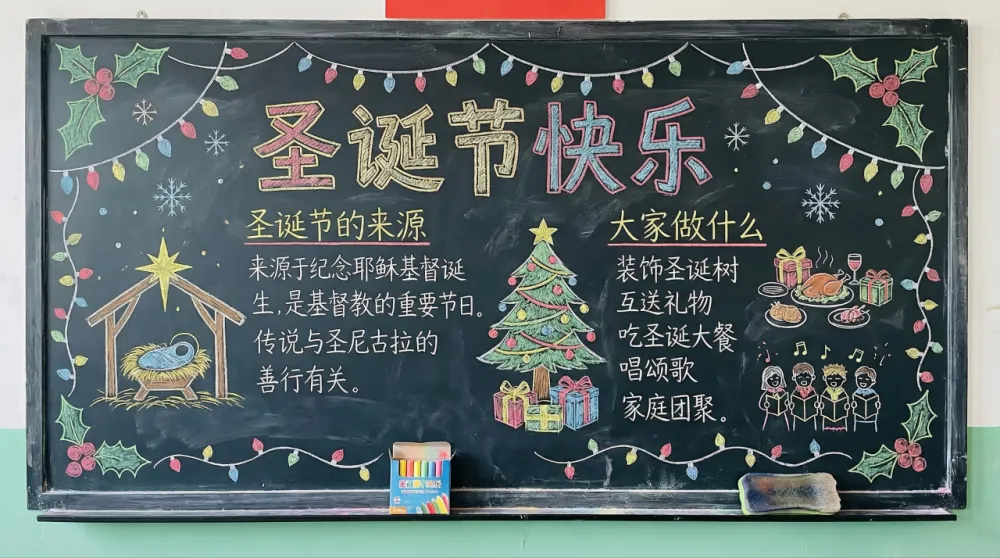 圣诞节快乐
圣诞节的来源
来源于纪念耶稣基督诞
生,是基督教的重要节日。
传说与圣尼古拉的
善行有关。
大家做什么
装饰圣诞树
互送礼物
吃圣诞大餐
唱颂歌
家庭团聚。